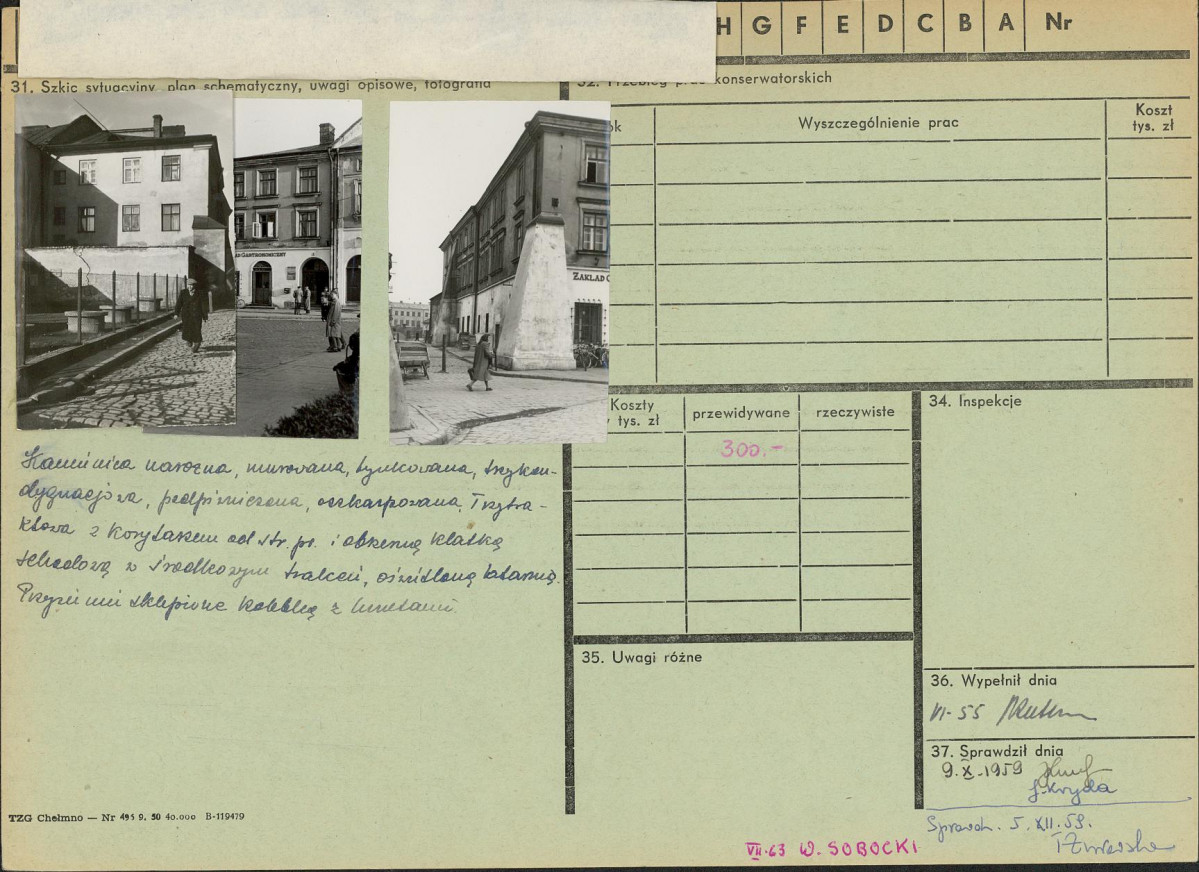 H G F E D C B A Nr
31. Szkic sytuacyjny, plan schematyczny, uwagi opisowe, fotografia
AD GASTRONOMICZNY
ZAKŁAD G
Kamienica narożna, murowana, tynkowana, trzykon-
dygnacjowa, podpiwniczona, oszkarpowana. Trzytra-
ktowa z korytarzem od str. pr. i obszerną klatką
schodową w środkowym trakcie, oświetloną latarnią.
Przyziemie sklepione kolebką z lunetami.
TZG Chełmno — Nr 495 9. 50 40.000 B-119479
32. Przebieg prac konserwatorskich
ok
Wyszczególnienie prac
Koszt
tys. zł
Koszty
tys. zł
przewidywane
rzeczywiste
300.-
34. Inspekcje
35. Uwagi różne
36. Wypełnił dnia
VI-55
37. Sprawdził dnia
9.X.1959
Sprawdz. 5.XII.59.
VII-63 W. SOBOCKI